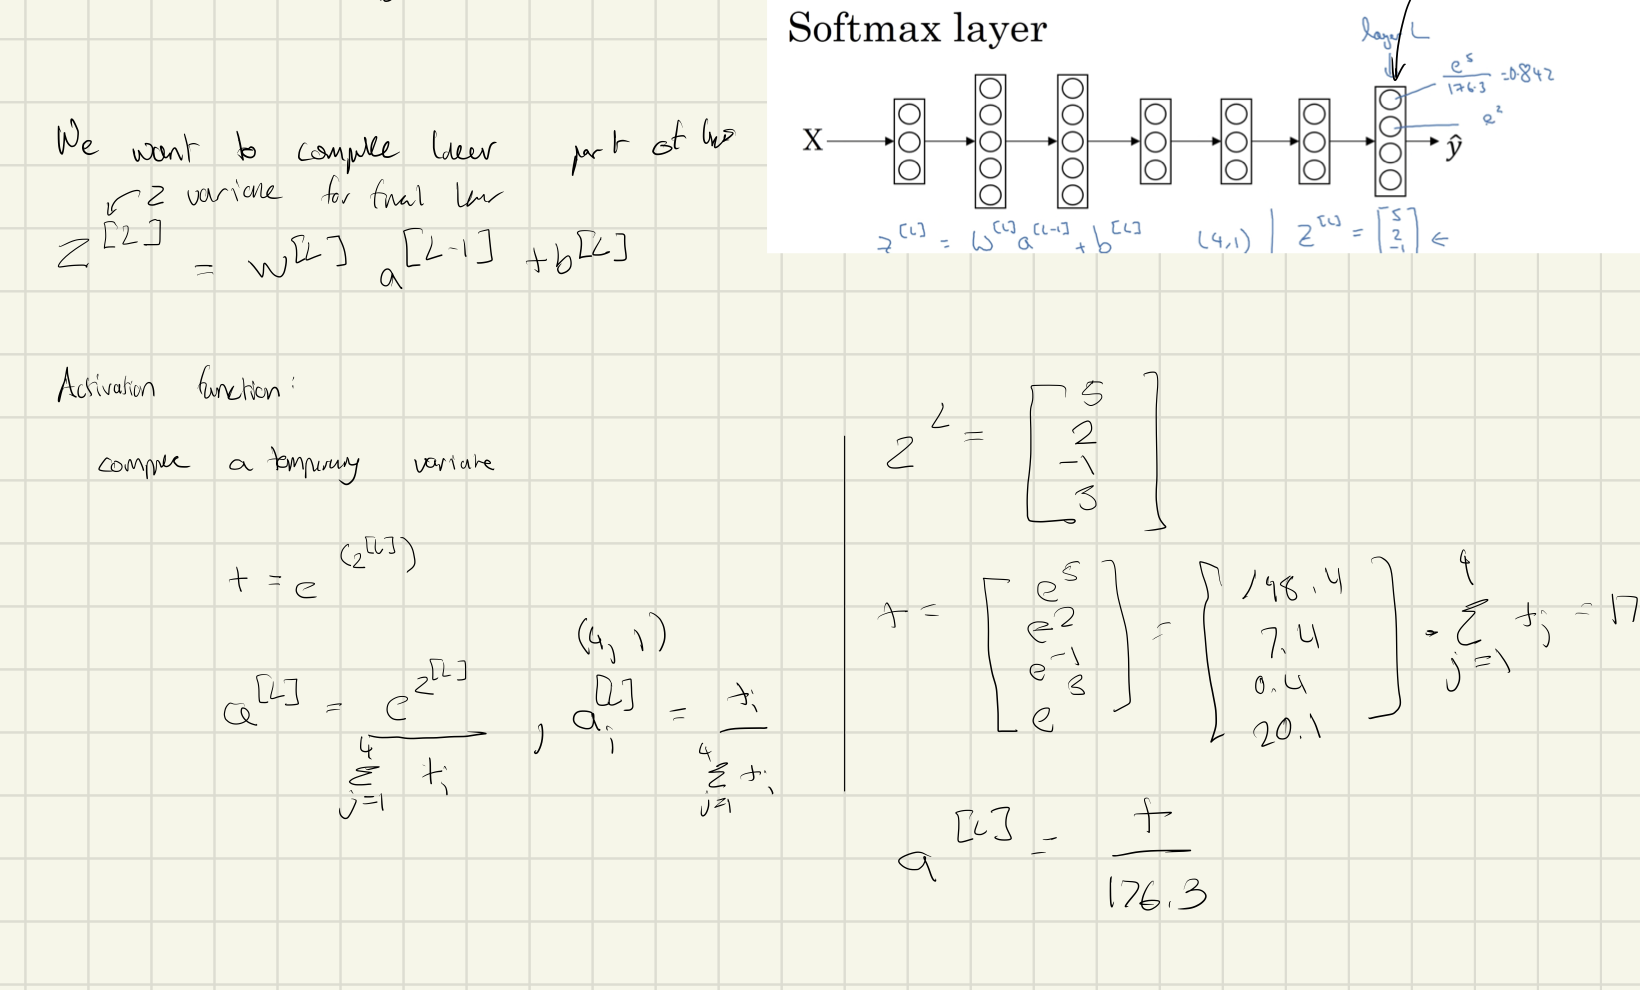 Softmax layer
layer L
e^5 / 176.3 = 0.842
e^2
X
ŷ
z^[L] = W^[L] a^[L-1] + b^[L] (4,1) | Z^[L] = [5 2 -1] ←
We want to compute linear part of the
Z variable for final
Z^[L] = W^[L] a^[L-1] + b^[L]
Activation function:
compute a temporary variable
t = e^(z^[L])
(4, 1)
a^[L] = e^z^[L] / ∑_{j=1}^4 t_i , a_i^[L] = t_i / ∑_{j=1}^4 t_i
z^L = [5 2 -1 3]
t = [e^5 e^2 e^-1 e^3] = [148.4 7.4 0.4 20.1] . ∑_{j=1}^4 t_j = 17
a^[L] = t / 176.3